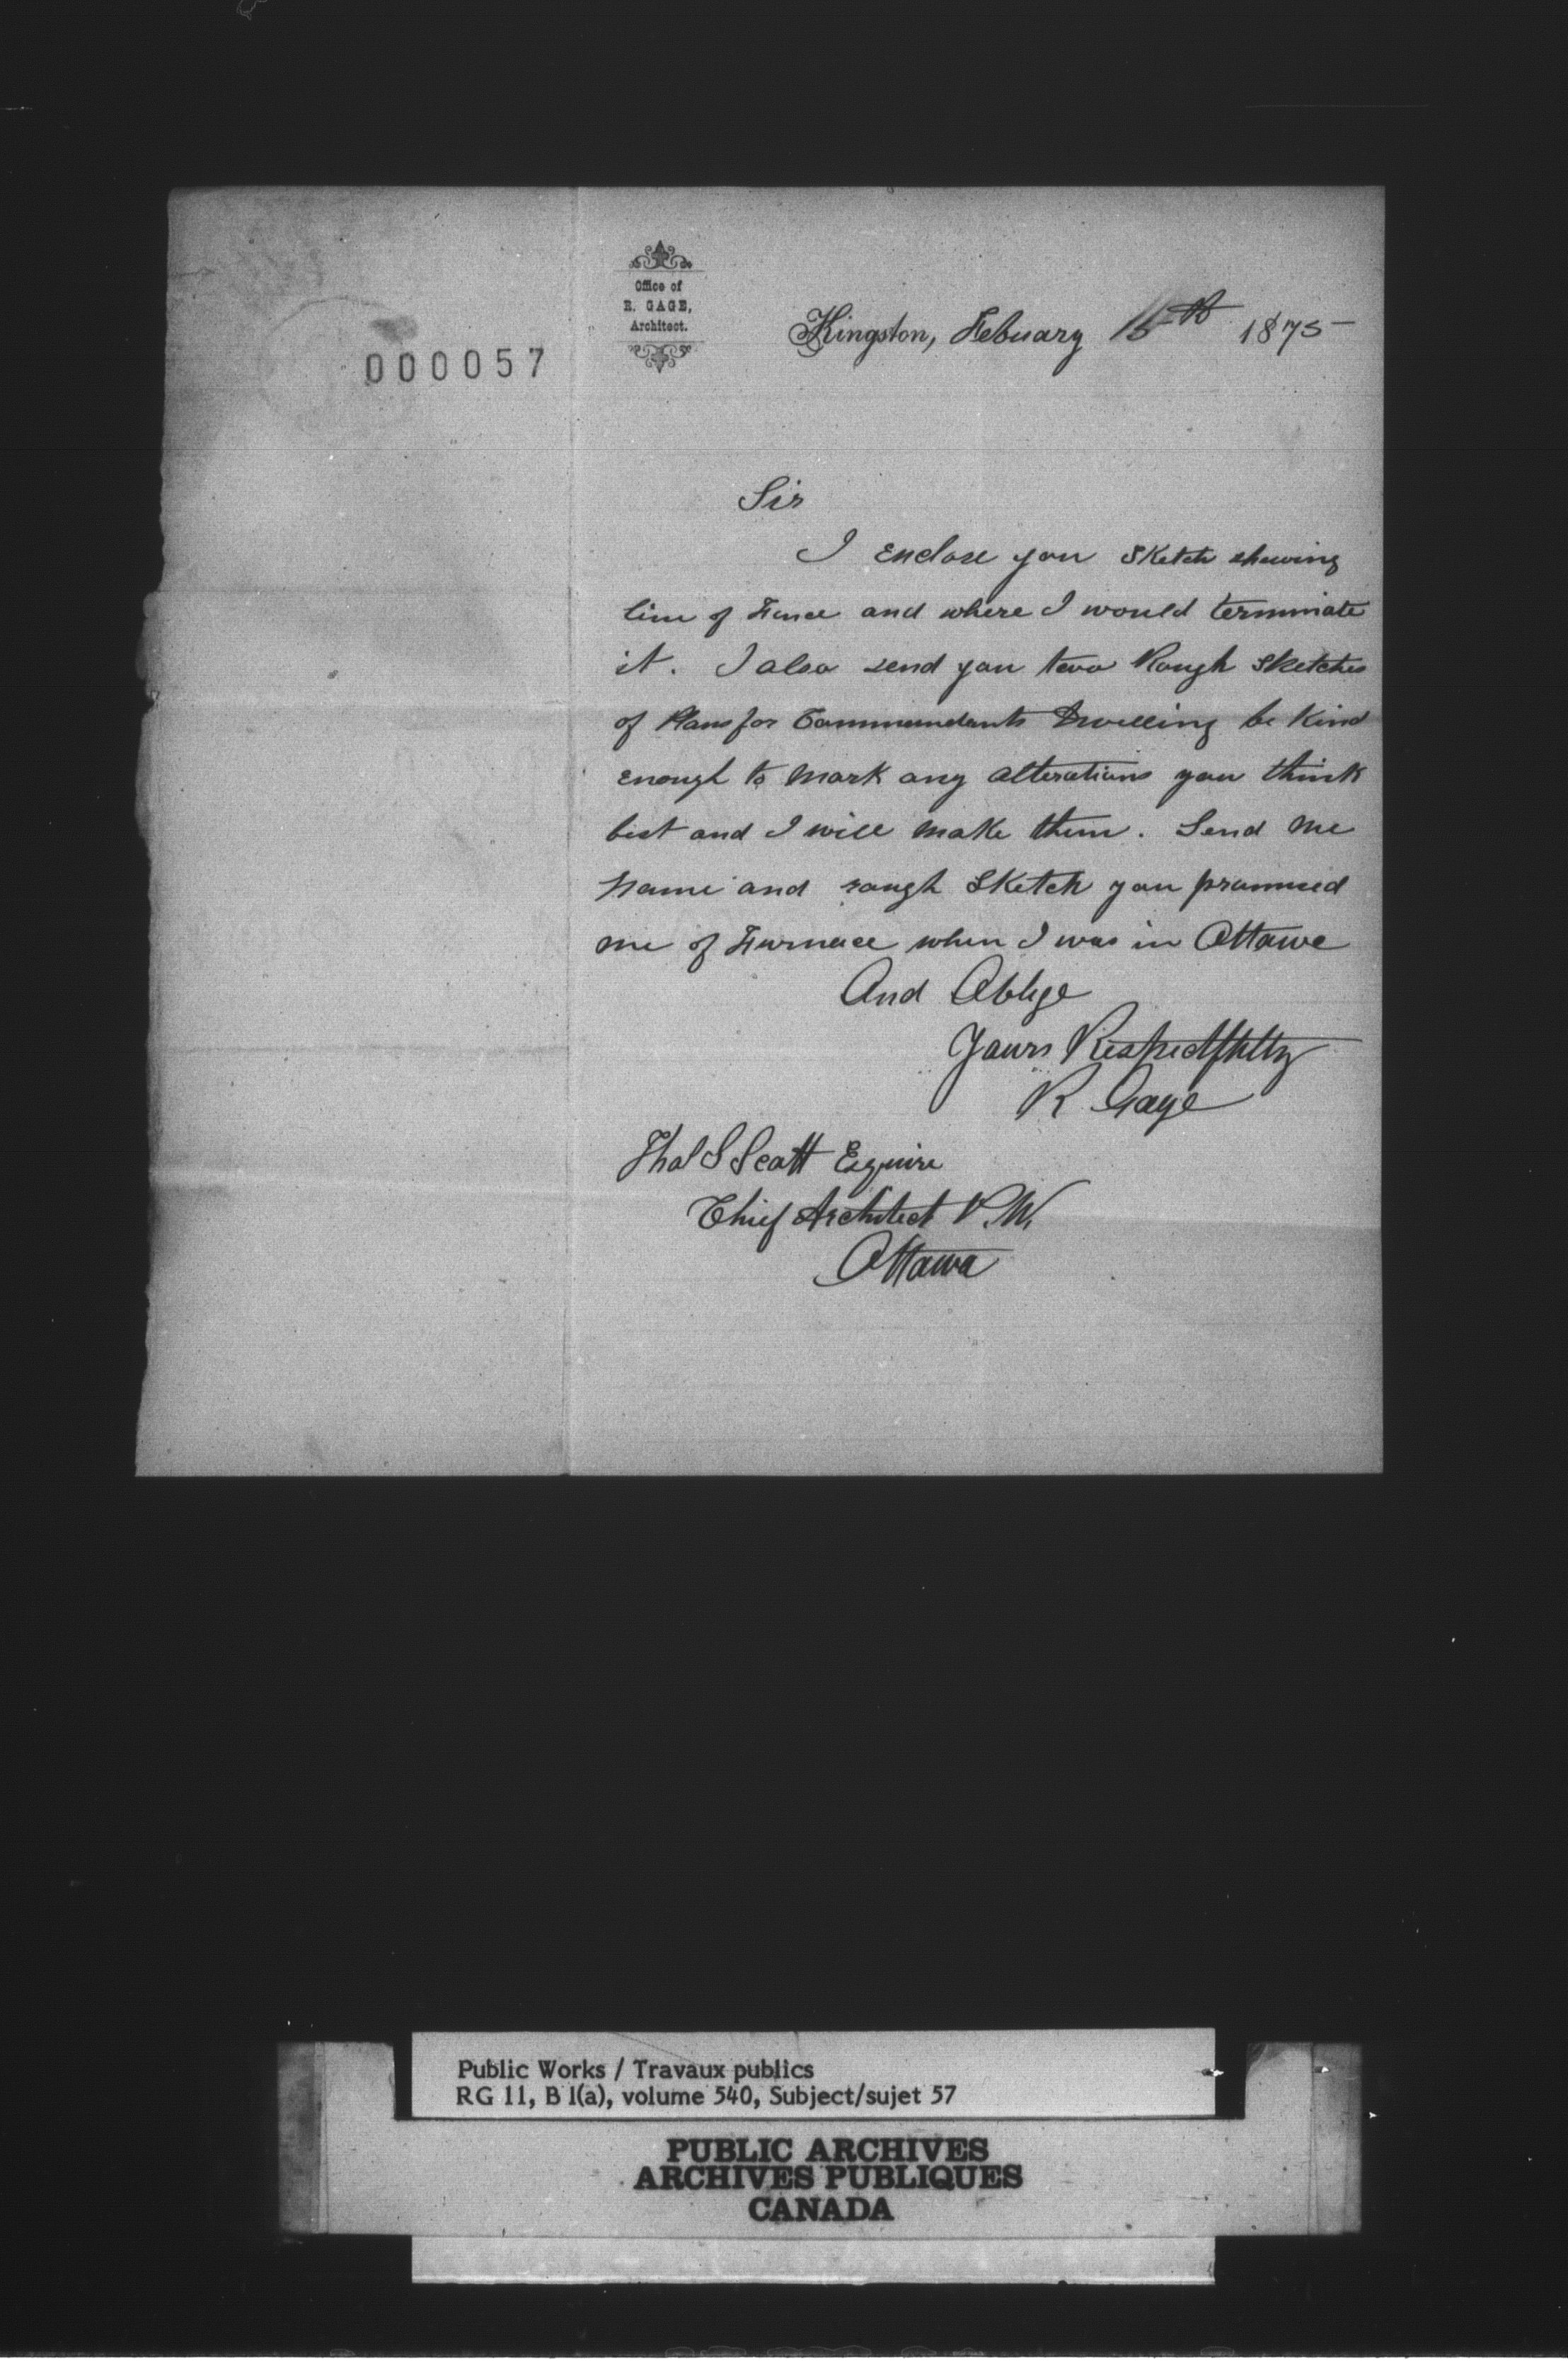 Office of
R. GAGE,
Architect.
000057
Kingston, Febuary 15th 1875
Sir
I Enclose you Sketch shewing
line of Fence and where I would terminate
it. I also send you two Rough Sketches
of Plans for Commandants Dwelling be Kind
enough to Mark any Alterations you think
best and I will Make them. Send Me
Name and rough Sketch you prommised
me of Furnace when I was in Ottawa
And Oblige
Yours Respectfully
R Gage
Thos S Scott Esquire
Chief Architect P.W.
Ottawa
Public Works / Travaux publics
RG 11, B 1(a), volume 540, Subject/sujet 57
PUBLIC ARCHIVES
ARCHIVES PUBLIQUES
CANADA